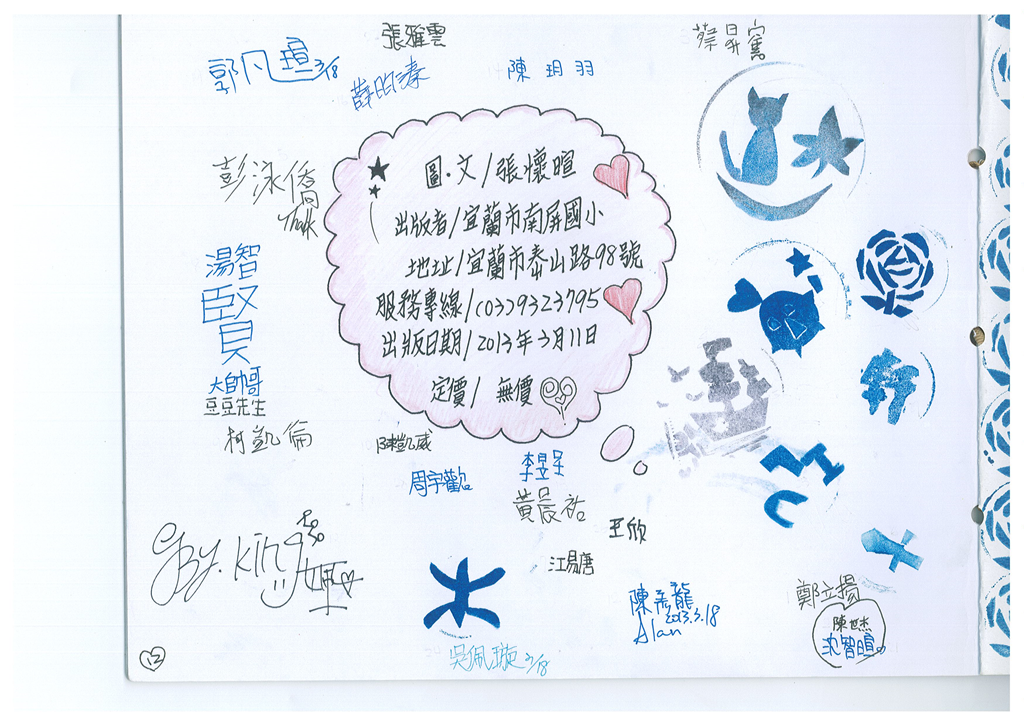 張雅雲
郭凡瑄3/8
薛昀溱
陳玥羽
蔡昇
彭泳僑
Thank
圖.文/張懷暄
出版者/宜蘭市南屏國小
地址/宜蘭市泰山路98號
服務專線/(03)9323795
出版日期/2013年3月11日
定價/ 無價
湯智賢
大帥哥
豆豆先生
柯凱倫
陳凱威
周宇歡
李昱呈
黃晨祐
王欣
江易唐
By. King
吳佩璇3/8
陳彥龍
2013.3.18
Alan
鄭立揚
陳世杰
沈智暄
12